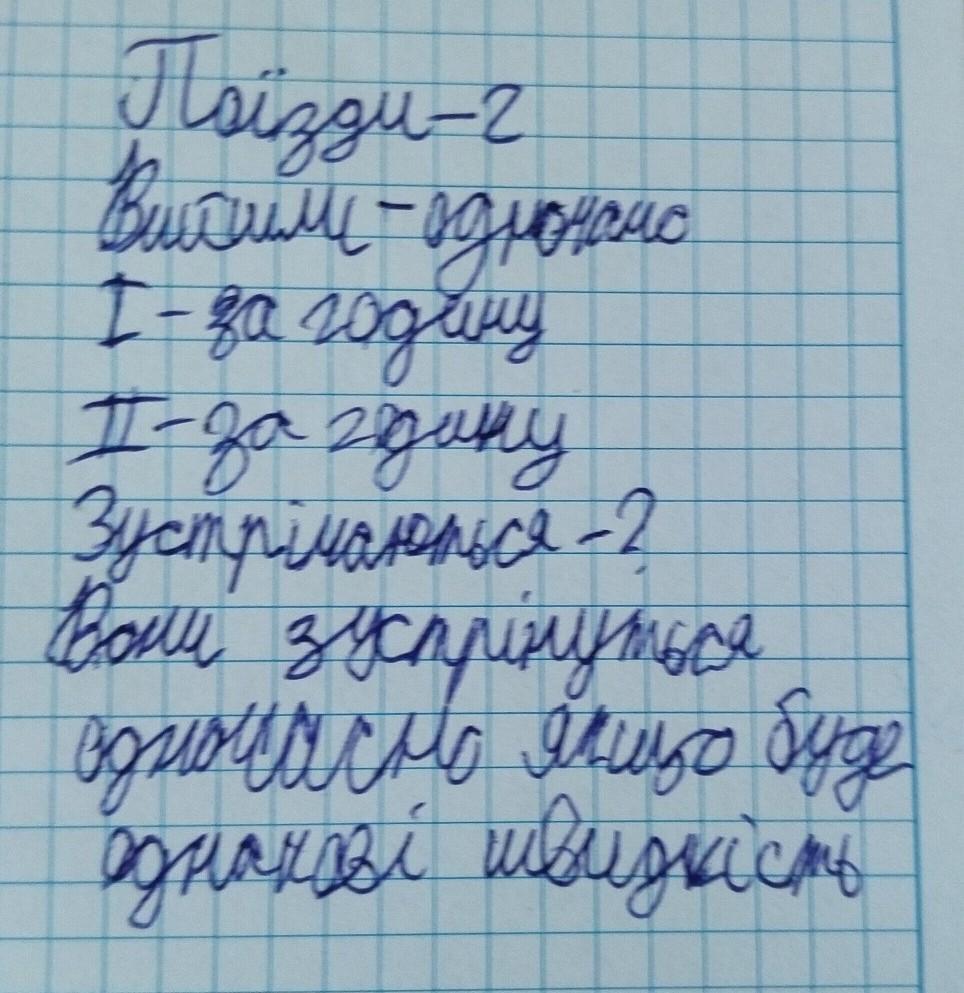 Поїзди-2
Виїхали - одночасно
I - за годину
II - за годину
Зустрічаються - ?
Вони зустрінуться
одночасно якщо буде
однакові швидкість